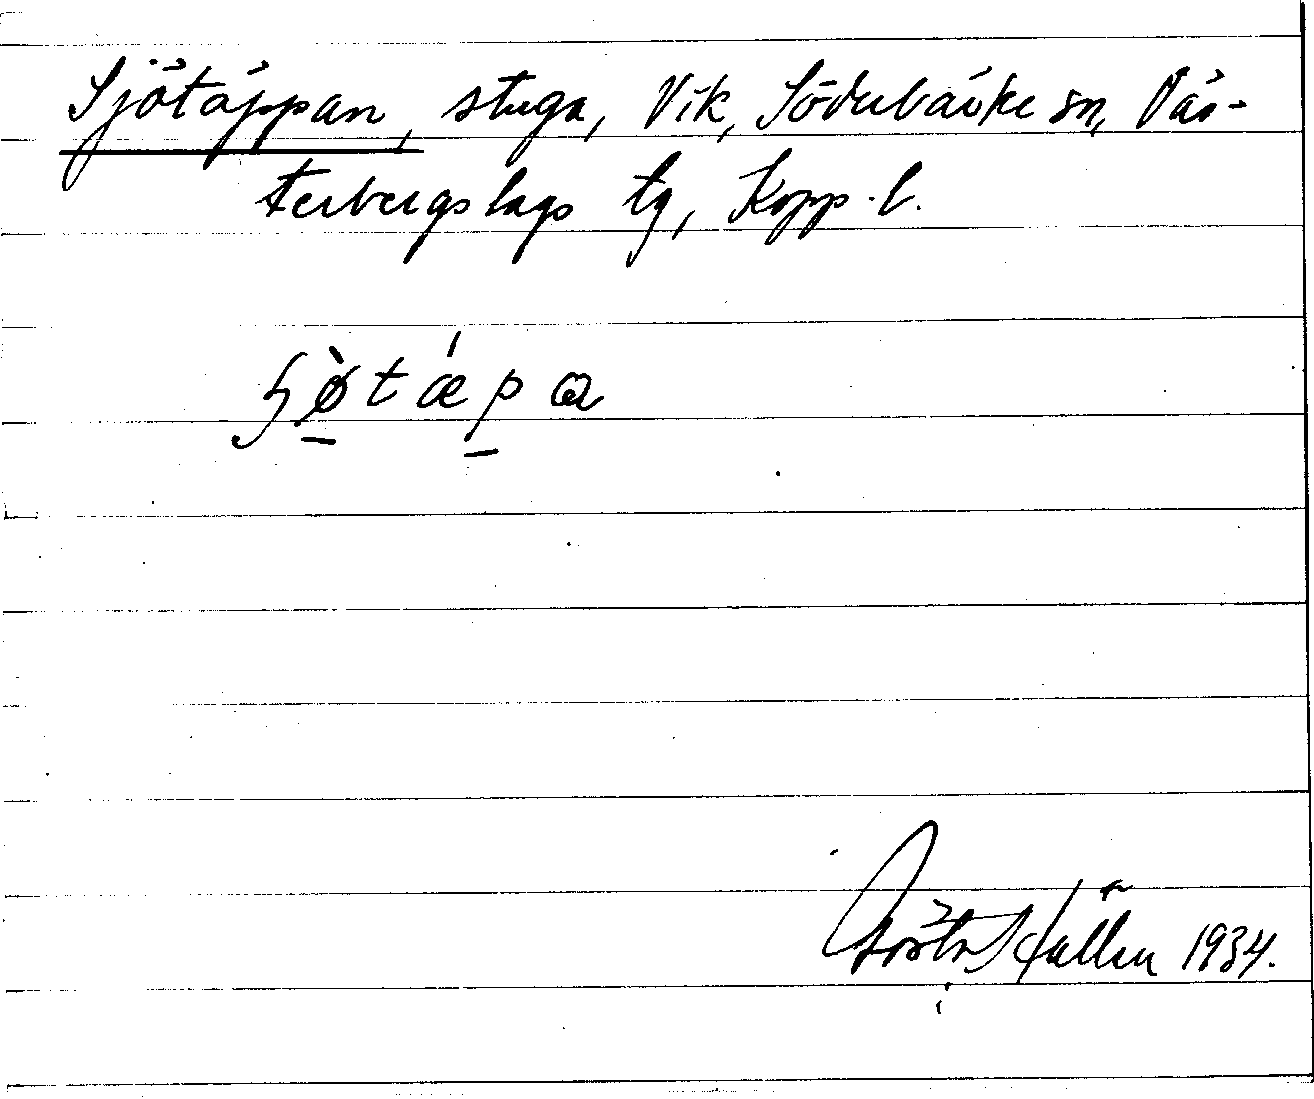 Sjötäppan, stuga, Vik, Söderbärke sn, Väs-
terbergslags tg, Kopp. l.
ʂø̀tǽpa
Gösta Källén 1934.